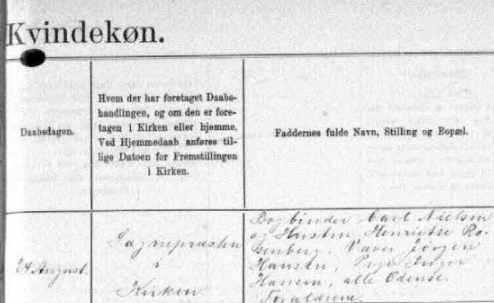 Kvindekøn.
Daabsdagen.
Hvem der har foretaget Daabs-
handlingen, og om den er fore-
tagen i Kirken eller hjemme.
Ved Hjemmedaab anføres til-
lige Datoen for Fremstillingen
i Kirken.
Faddernes fulde Navn, Stilling og Bopæl.
24 August.
Sognepræsten
i
Kirken.
Bogbinder Carl Nielsen
og Hustru Henriette Ro-
senberg. Væver Jørgen
Hansen, Pige Inger
Hansen, alle Odense.
Forældrene.